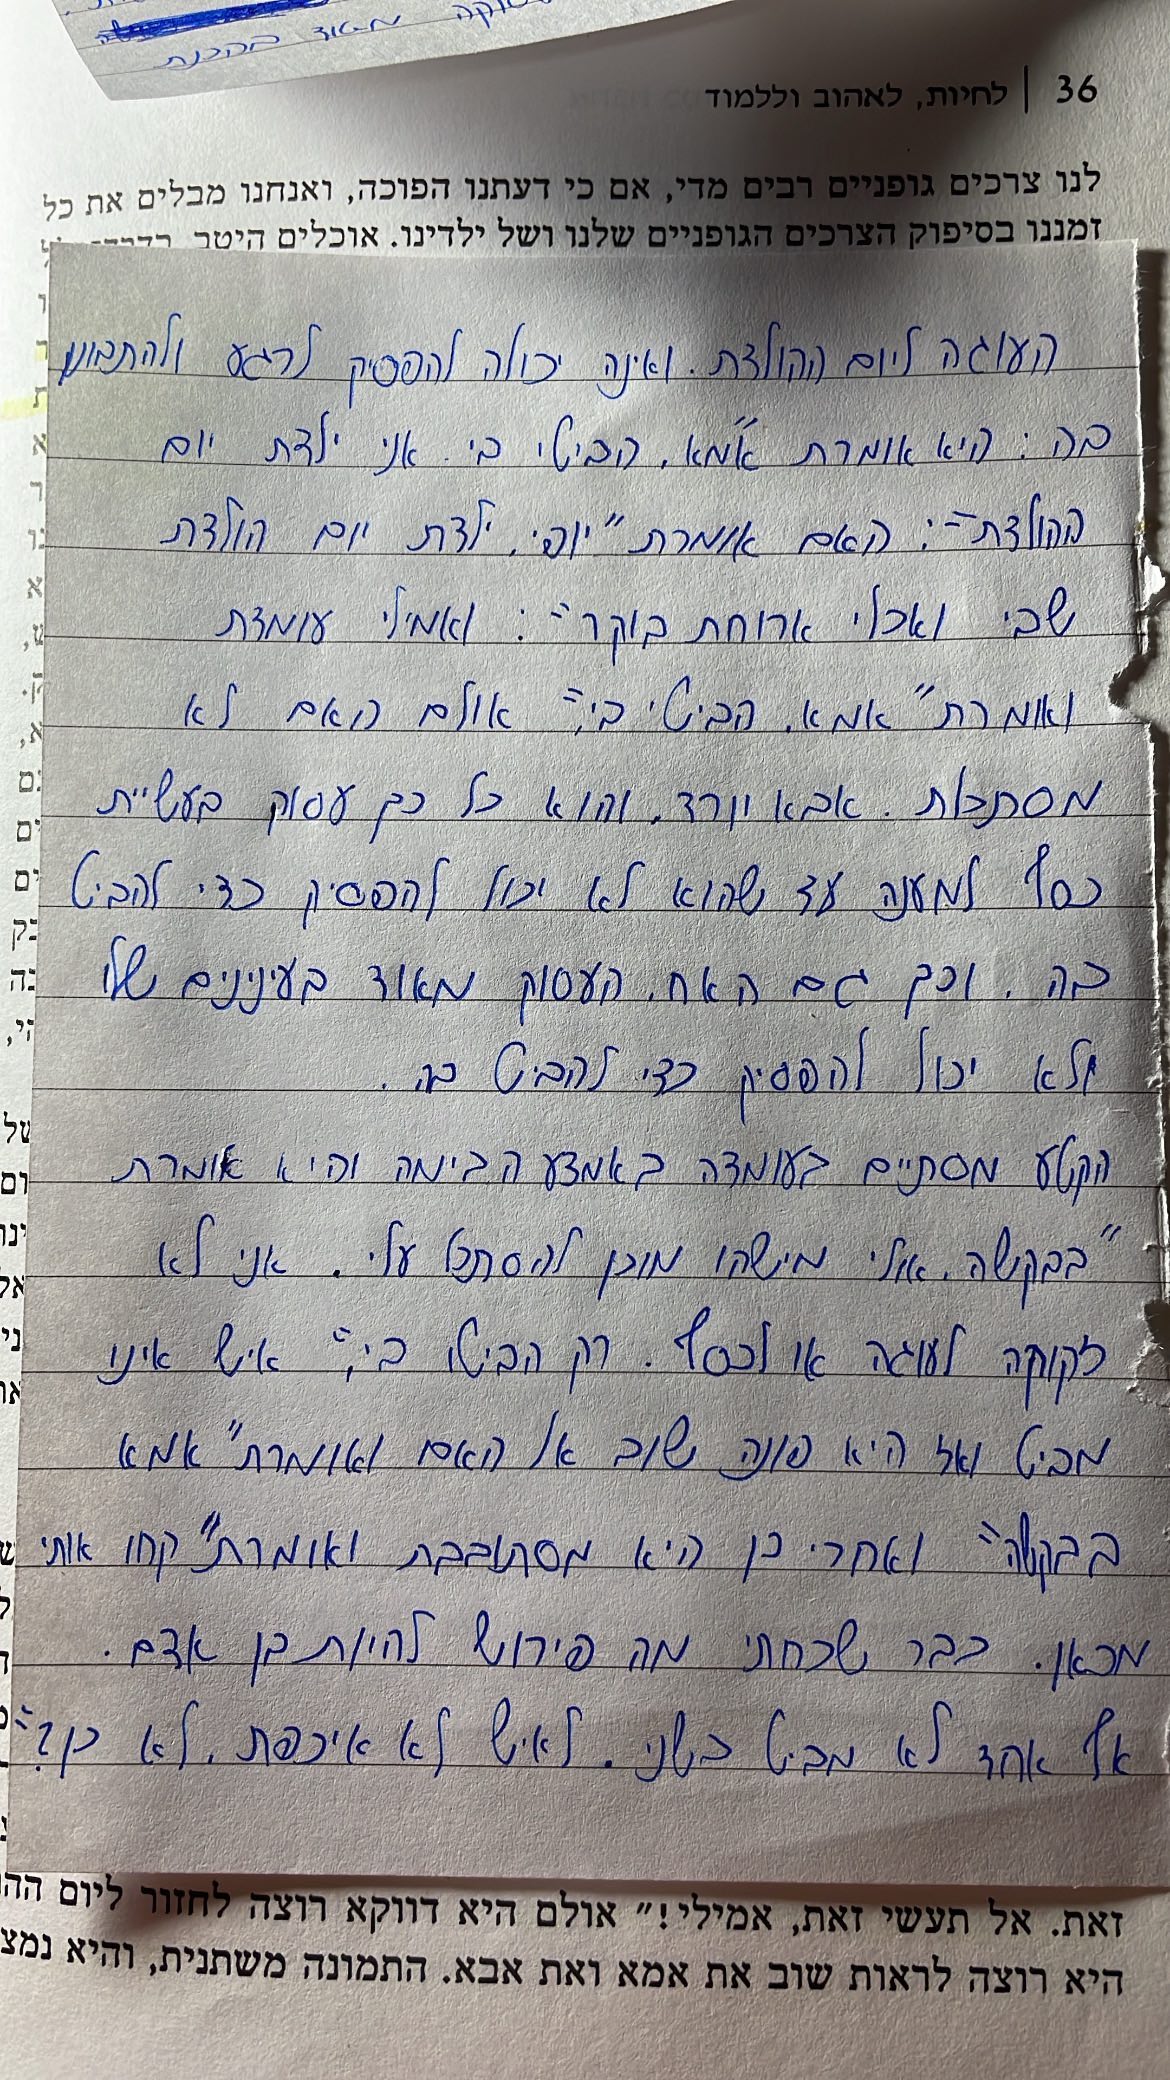 מאוד בהכנת
36 | לחיות, לאהוב וללמוד
לנו צרכים גופניים רבים מדי, אם כי דעתנו הפוכה, ואנחנו מבלים את כל
זמננו בסיפוק הצרכים הגופניים שלנו ושל ילדינו. אוכלים היטב,
העוגה ליום ההולדת. ואינה יכולה להפסיק לרגע ולהתבונן
בה: היא אומרת "אמא, הביטי בי. אני ילדת יום
ההולדת": האם אומרת "יופי, ילדת יום הולדת
שבי ואכלי ארוחת בוקר": ואמילי עומדת
ואומרת "אמא, הביטי בי," אולם האם לא
מסתכלת. אבא יורד, והוא כל כך עסוק בעשיית
כסף למענה עד שהוא לא יכול להפסיק כדי להביט
בה. וכך גם האח, העסוק מאוד בעינינים שלו
ולא יכול להפסיק כדי להביט בה.
הקטע מסתיים בעומדה באמצע הבימה והיא אומרת
"בבקשה, אולי מישהו מוכן להסתכל עלי. אני לא
זקוקה לעוגה או לכסף. רק הביטו בי," איש אינו
מביט ואז היא פונה שוב אל האם ואומרת "אמא
בבקשה" ואחרי כן היא מסתובבת ואומרת "קחו אותי
מכאן. כבר שכחתי מה פירוש להיות בן אדם.
אף אחד לא מביט בשני. לאיש לא איכפת, לא כן?"
זאת. אל תעשי זאת, אמילי!" אולם היא דווקא רוצה לחזור ליום
היא רוצה לראות שוב את אמא ואת אבא. התמונה משתנית, והיא